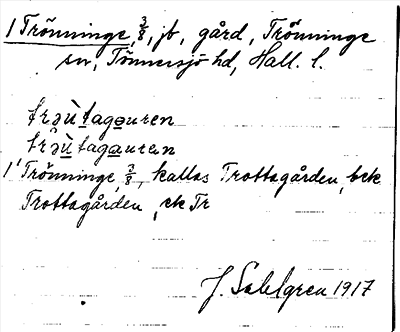 1 Trönninge, 3/8, jb, gård, Trönninge
sn, Tönnersjö hd, Hall. l.
trəùtagəuren
trəùtagauren
1 Trönninge, 3/8, kallas Trottagården, bek
Trottagården, ek Tr
J. Sahlgren 1917